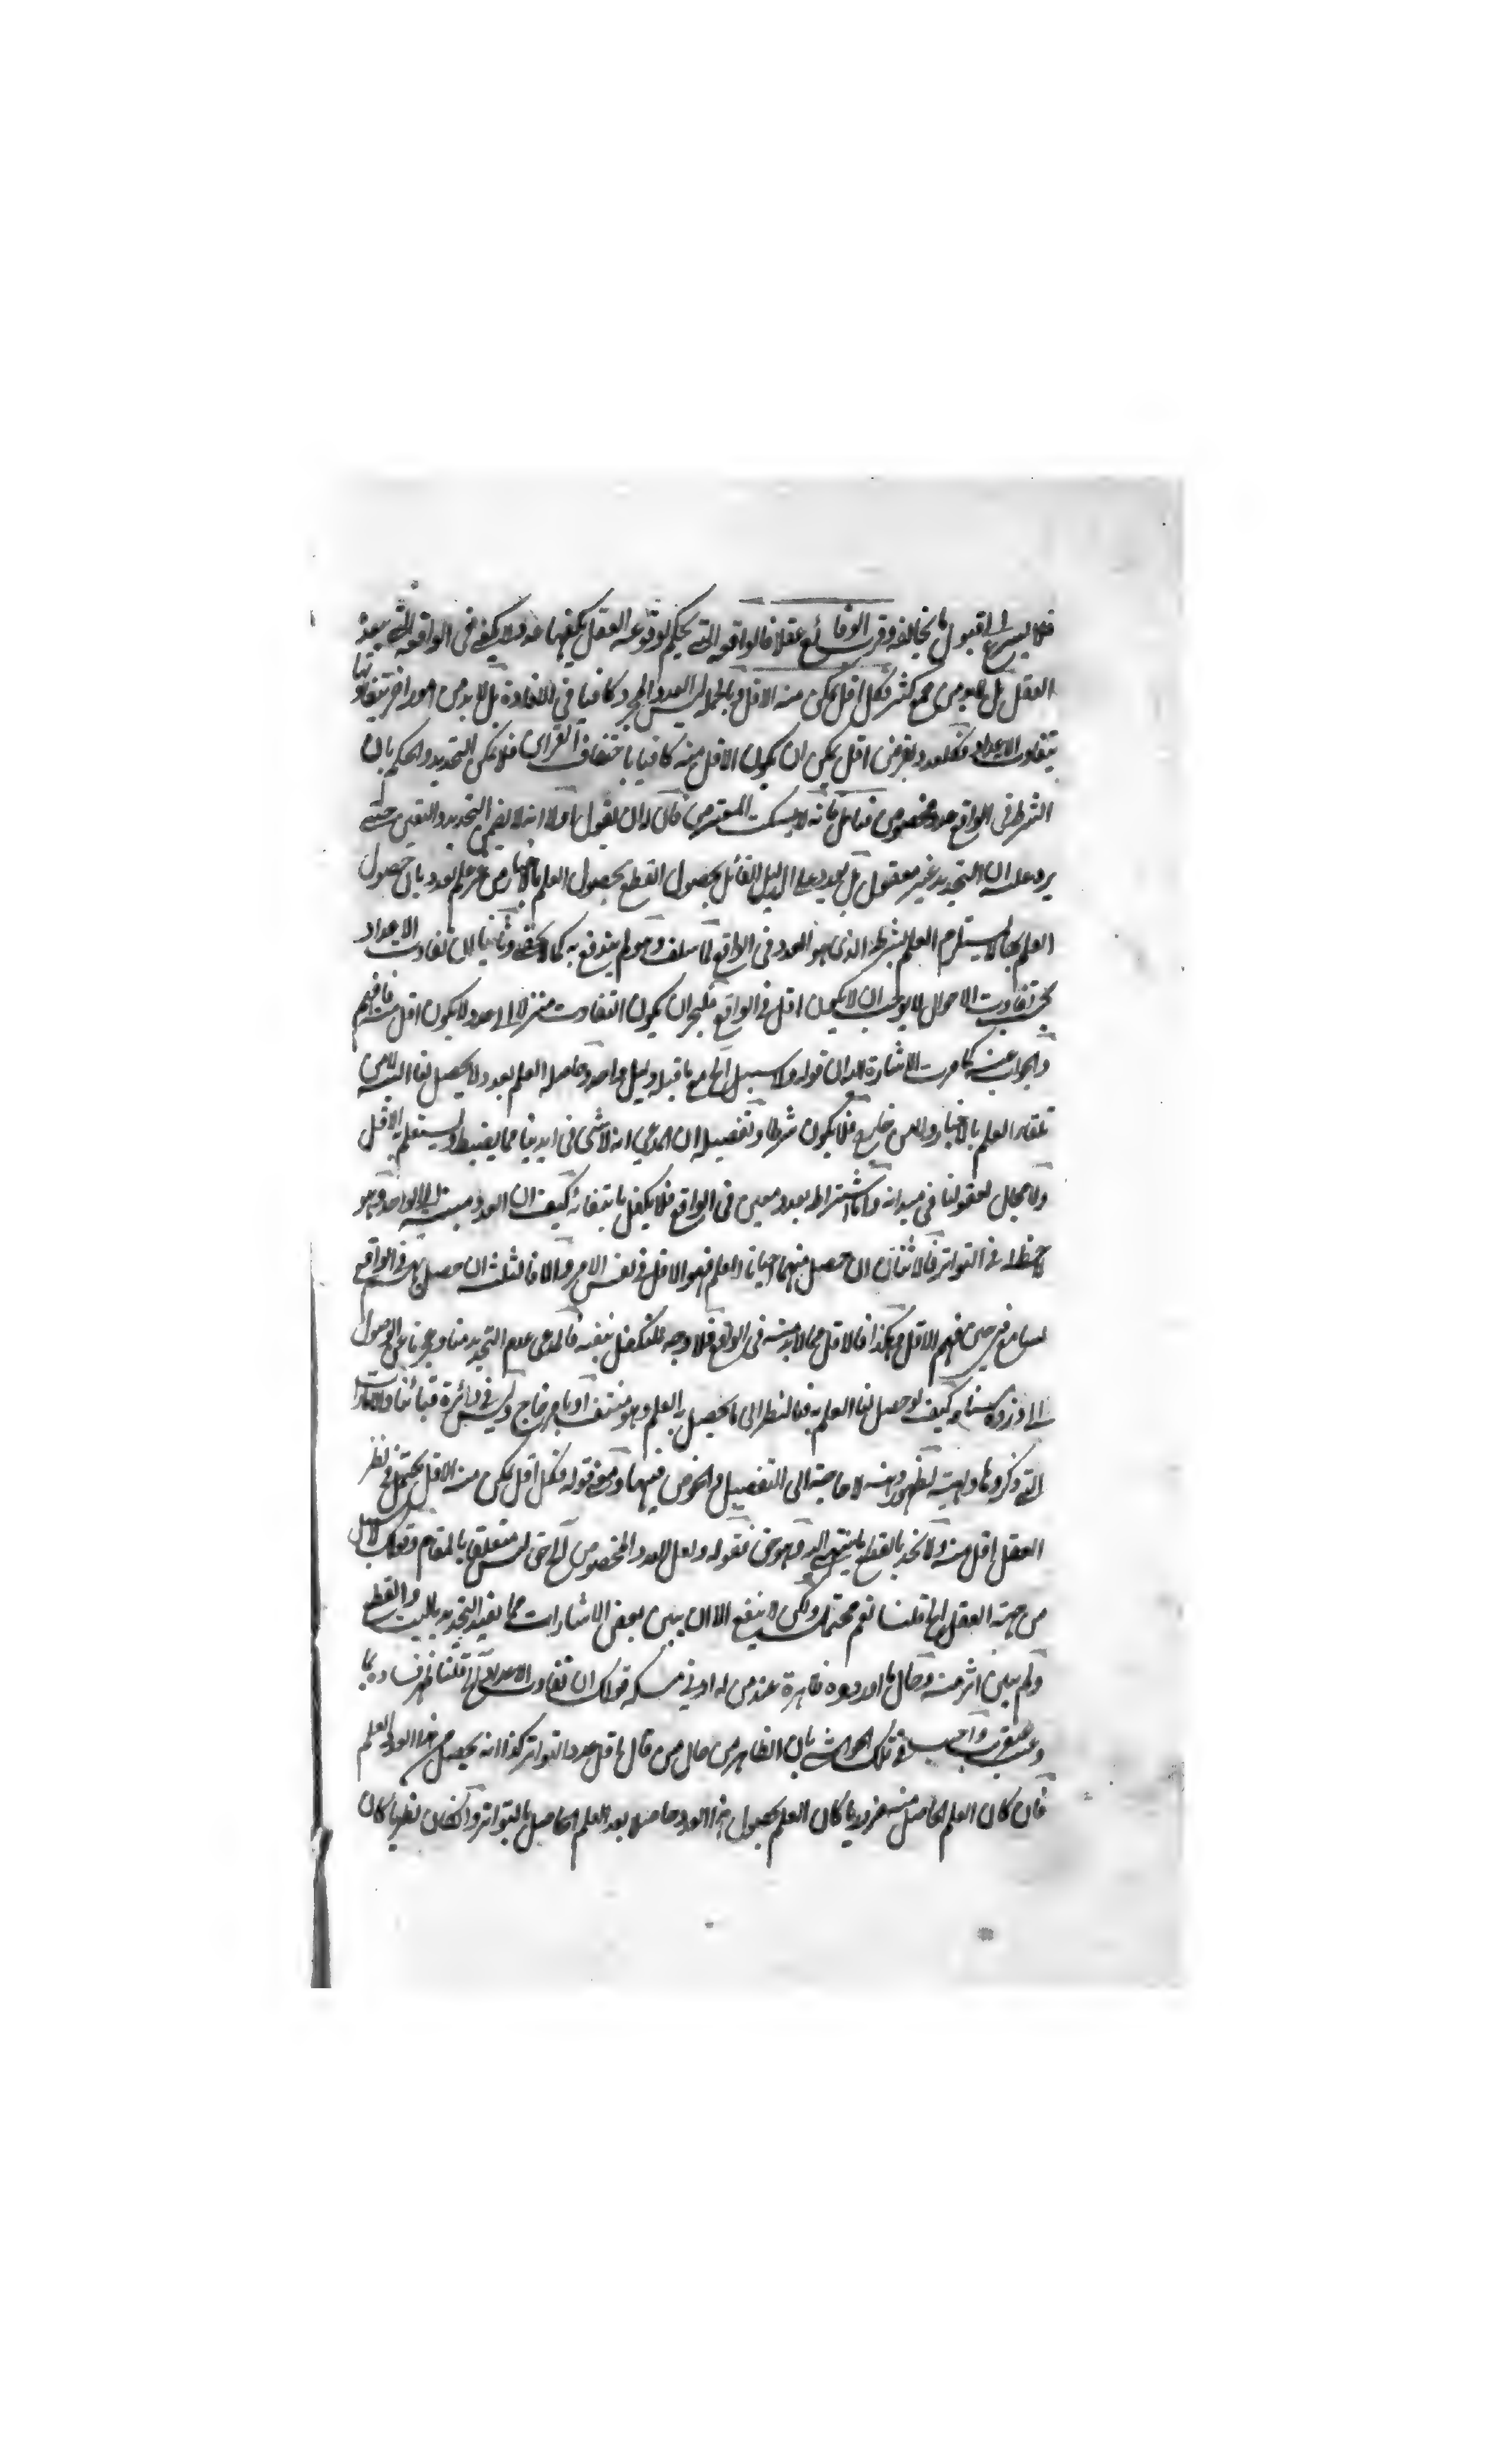 فلا يسرع الى قبول ما يخالفه وقرب الوقائع عقلا فالواقعة التي يحكم لوقوعه العقل يكفيها عدد لا يكفي في الواقعة التي يبعده
العقل بل لا بد من جمع كثير فكل اقل يمكن منه الاقل وبالجملة ليس العدد المجرد كافيا في الافادة بل لا بد من امور اخر بتفاوتها
يتفاوت الاعداد فكل عدد يفرض اقل يمكن ان يكون الاقل منه كافيا باختلاف القرائن فلا يمكن التحديد والحكم بان
الشرط في الواقع عدد مخصوص فتأمل فانه لا يسكت المعترض فان له ان يقول اولا انه لا يضر التحديد والتعين حتى
يرد عليه ان التحديد غير معقول بل يورد على الدليل القائل بحصول القطع بحصول العلم بالاخبار من غير علم بعدد بان حصول
العلم بها لا يستلزم العلم بشرطه الذي هو العدد في الواقع لما سلف وهو لم يندفع به كما لا يخفى وثانيا ان تفاوت الاعداد
بحسب تفاوت الاحوال لا يوجب ان لا يكون اقل في الواقع فليجز ان يكون التفاوت متنزلا الى عدد لا يكون اقل منه فافهم
والجواب عنه كما مرت الاشارة اليه ان قوله ولا سبيل الخ مع ما قبله دليل واحد وحاصله العلم بعدد لا يحصل لنا البتة لا من
تلقاء العلم بالاخبار ولا من خارج فلا يكون شرطا وتفصيله ان المدعى انه لا شيء في ايدينا مما يضبط ويستعلم به الاقل
ولا مجال لعقولنا في ميدانه واما اشتراط بعدد معين في الواقع فلا يكفل بانتفائه كيف ان العدد مبتدأ الى الواحد وهو
لا حظ له في التواتر فالاثنان ان حصل منهما احيانا العلم فهو الاقل في نفس الامر والا فالثلث ان حصل بهم في الواقع
حين فهم الاقل وهكذا فالاقل مما لا بد منه في الواقع فلا وجه للتكفل بنفيه فالمدعى عدم التحديد منا وعجزنا عن الوصول
الى كيف لو حصل لنا العلم به فبالنظر الى ما يحصل به العلم وهو منتف او بامر خارج وليس في دائرة والامارات
التي ذكروها واهية لظهور منه لا حاجة الى التفصيل والخوض فيها ومعنى قوله فكل اقل يمكن منه الاقل يحتمل في نظر
العقل اقل منه ولا نجد بالقطع ما ينتهي اليه وهو حق فقوله ولعل العدد المخصوص الخ حق ليس متعلقا بالمقام وقولك لا بل
من جهة العقل الخ قلنا نعم محتمل ولكن لا ينفع الا ان يبين بعض الاشارات مما يفيد التحديد بالبت والقطع
ولم يبين اثر منه وحال ما اوردوه ظاهرة عند من له ادنى مسكة قولك ان تفاوت الاعداد الخ قلنا ظهر فساده بما
وعن قريب واجيب في تلك الحواشي بان الظاهر من حال من قال باقل عدد التواتر كذا انه يحصل من هذا العدد العلم
فان كان العلم الحاصل منه ضروريا كان العلم بحصول هذا العدد حاصلا بعد العلم الحاصل بالتواتر وان كان نظريا كان